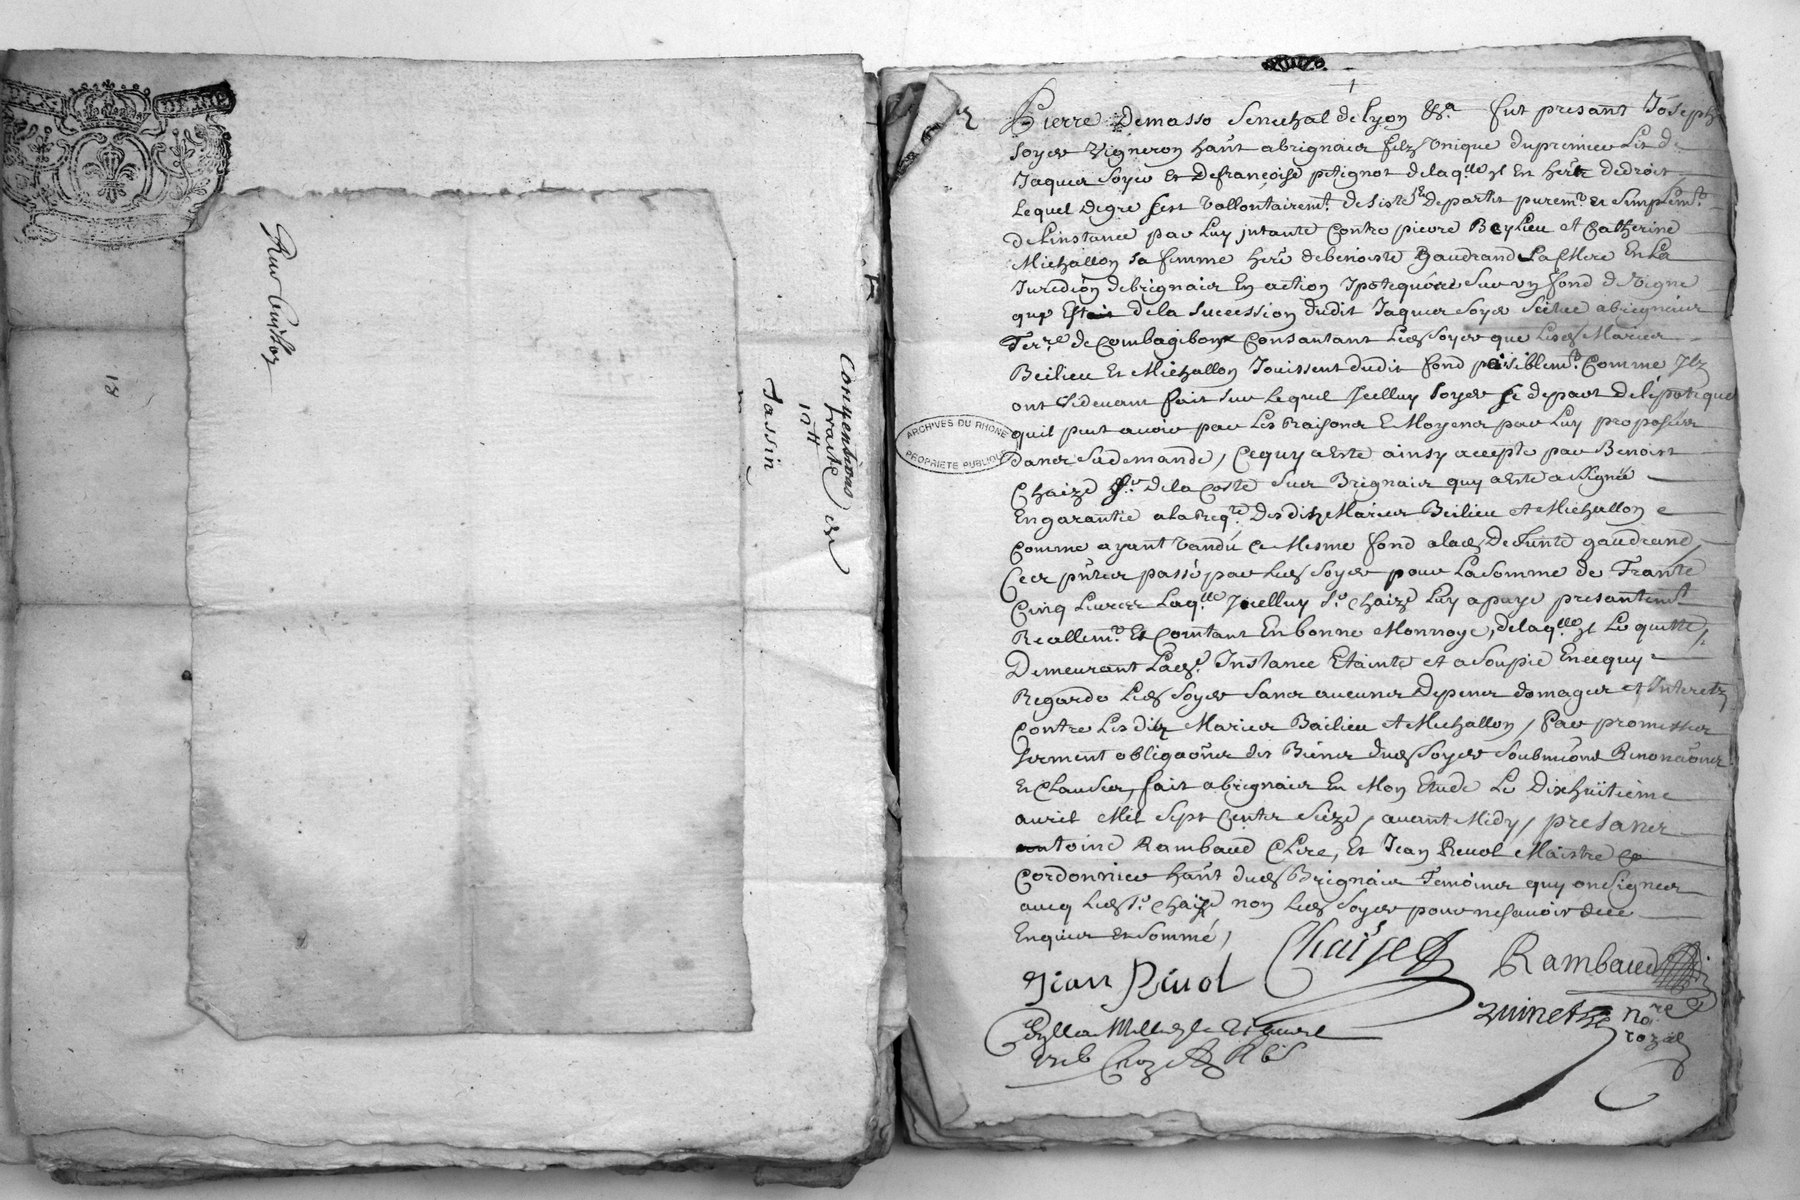 13
Conventions
traité
Tassin
ARCHIVES DU RHONE
PROPRIETE PUBLIQUE
Pierre Demasso Senechal de Lyon &a. fut presant Joseph
Soyer Vigneron hãnt a brignair filz Unique du premier Lit de
Jaques Soyer Et de francoise petignot de laqlle il Est herᵉ de droit
Lequel de gre sest Vollontairemt. desisté & departit puremt. et simplemt.
de Linstance par Luy jntanté contre pierre Beylieu et Catherine
Michallon sa femme herᵉ de benoiste gaudrand La Mere En La
Juredion de brignair En action Ipotequere sur un fond de Vigne
quy Estait de la Succession dudit Jaques Soyer scitué a brignair
Terre. de Combagibon Consantant Led. Soyer que Lesd. Mariez
Beilieu Et Michallon Jouissent dudit fond paisiblemt. Comme Ilz
ont cidevant fait sur Lequel Jcelluy Soyer se depart de lépoteque
quil peut avoir par Les Raisons & Moyens par Luy proposéés
dans sa demande, Ce quy a Esté ainsy accepté par Benoist
Chaize Sr. de la Coste sur Brignair quy a Esté assigné
En garantie a la Reqte. desdits Mariez Beilieu et Michallon
comme ayant Vandú ce Mesme fond a lad. defunte gaudrand
Ces pñtes passé par Led. Soyer pour La Somme de Trante
Cinq Livres Laqlle Jcelluy Sr. Chaize Luy a payé presantemt
Reallemt. Et Comtant En bonne Monnoye, de laqlle il Le quitte,
Demeurant Lade. Instance Etainte et asoupie En ce quy
Regarde Led. Soyer Sans aucuner Depener domager et Interetz
contre Lesdits Mariez Bailieu et Michallon, Par promesses
serment obligaõnes des Biener dud. Soyer Soubmiõns Renonçaõnes
Et Clauser, fait a brignair En Mon Etude Le Dixhuitieme
avril Mil Sept Cents Seize, avant Midy, presanes
antoine Rambaud Clerc, Et Jean Revol Maistre Co
Cordonnier hãnt dud. Brignair Temoins quy on Signez
avecq Led. Sr. Chaize non Led. Soyer pour ne sçavoir de ce
Enquis Et Sommé,
Chaize
Rambaud
Jean Revol
Vuinet
nore
rozal